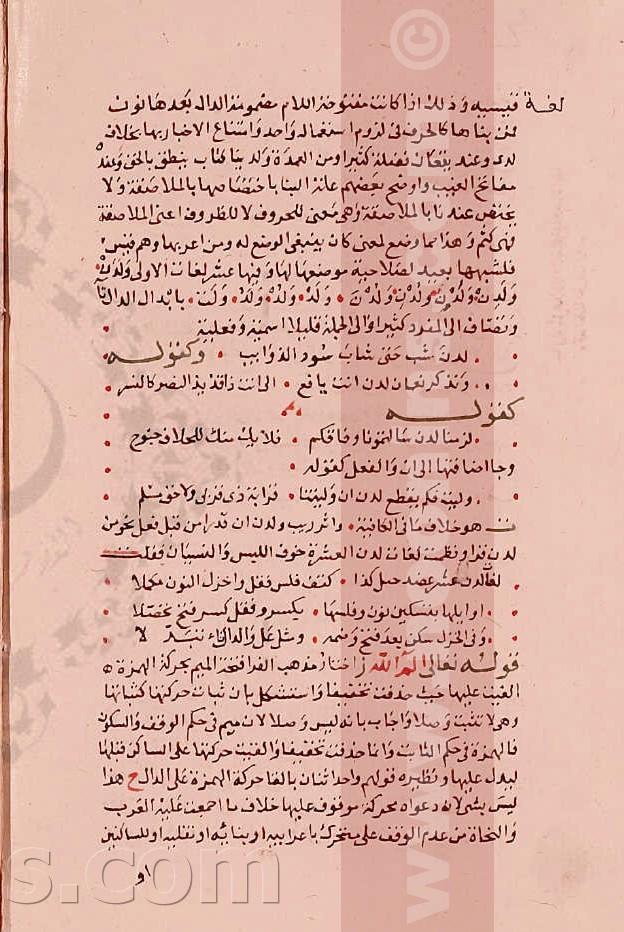 لغة قيسيه وذلك اذا كانت مفتوحة اللام مضمومة الدال بعدها نون
لمن بناها كالحرف في لزوم استعمال واحد وامتناع الاخبار بها بخلاف
لدى وعند يقعان فضلة كثيرا ومن العمدة ولدينا كتاب ينطق بالحق وعنده
مفاتح الغيب واوضح بعضهم علة البنا باختصاصها بالملاصقة ولا
يختص عند نا بالملاصقة وهي معنى للحروف لا للظروف اعنى الملاصقة
فهى كثم وهذا مما وضع لمعنى كان ينبغى الوضع له ومن اعربها وهم قيس
فلشبهها بعند لصلاحية موضعها لها وفيها عشر لغات الاولى ولدن
ولدن ولدن ولدن ولدن ولد ولد ولد ولت بابدال الدال تا
وتضاف الى المفرد كثيرا والى الجملة قليلا اسمية وفعلية
لدن شب حتى شاب سود الذوايب وكقوله
وتذكر نعمان لدن انت يافع الى انت
كقوله
لزمنا لدن سالمتونا وفاقكم فلا يك منك للخلاف جنوح
وجا اضافتها الى ان والفعل كقوله
وليت فلم يقطع لدن ان وليتنا قرابة ذى قربى ولا حق مسلم
هو خلاف ما فى الكافية وان قدرا من قبل فعل نحو من
لدن قفوا ونظمت لغات لدن العشرة خوف اللبس والنسيان فقلت
لغا لدن عشر عضد جبل كذا كتف فلس قفل واحزل النون مكملا
اوايلها بتسكين نون وقلبها بكسر وقفل كسر فتح تحصلا
وفى الحزل سكن بعد فتح وضمه ومثل عل والدال تا تبدلا
قوله تعالى الم الله ز اختار مذهب الفرا فتحة الميم بحركة الهمزة
القيت عليها حيث حذفت تخفيفا واستشكل بان ثبات حركتها كثباتها
وهي لا تثبت وصلا واجاب بانه ليس وصلا لان ميم فى حكم الوقف والسكون
فالهمزة فى حكم الثابت وانما حذفت تخفيفا والقيت حركتها على الساكن قبلها
ليدل عليها ونظيره قولهم واحد اثنان بالقا حركة الهمزة على الدال ح هذا
ليس بشئ لان دعواه بحركة موقوف عليها خلاف ما اجمعت عليه العرب
والنحاة من عدم الوقف على متحرك باعرابية او بنائية او نقلية او للساكنين
او
s.com
www.
©